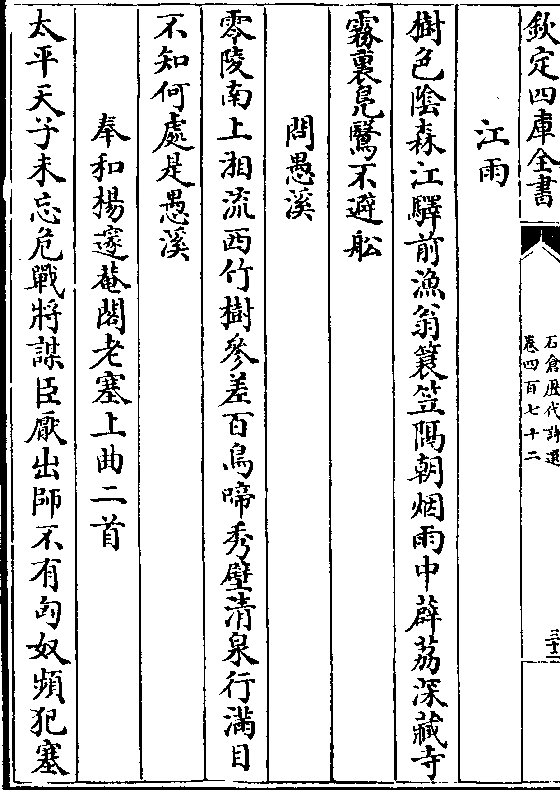 欽定四庫全書
石倉歷代詩選
卷四百七十二
三十二
江雨
樹色陰森江驛前漁翁簑笠隔朝烟雨中薜荔深藏寺
霧裏鳬鷖不避舩
問愚溪
零陵南上湘流西竹樹參差百鳥啼秀壁清泉行滿目
不知何處是愚溪
奉和楊邃菴閣老塞上曲二首
太平天子未忘危戰將謀臣厭出師不有匈奴頻犯塞